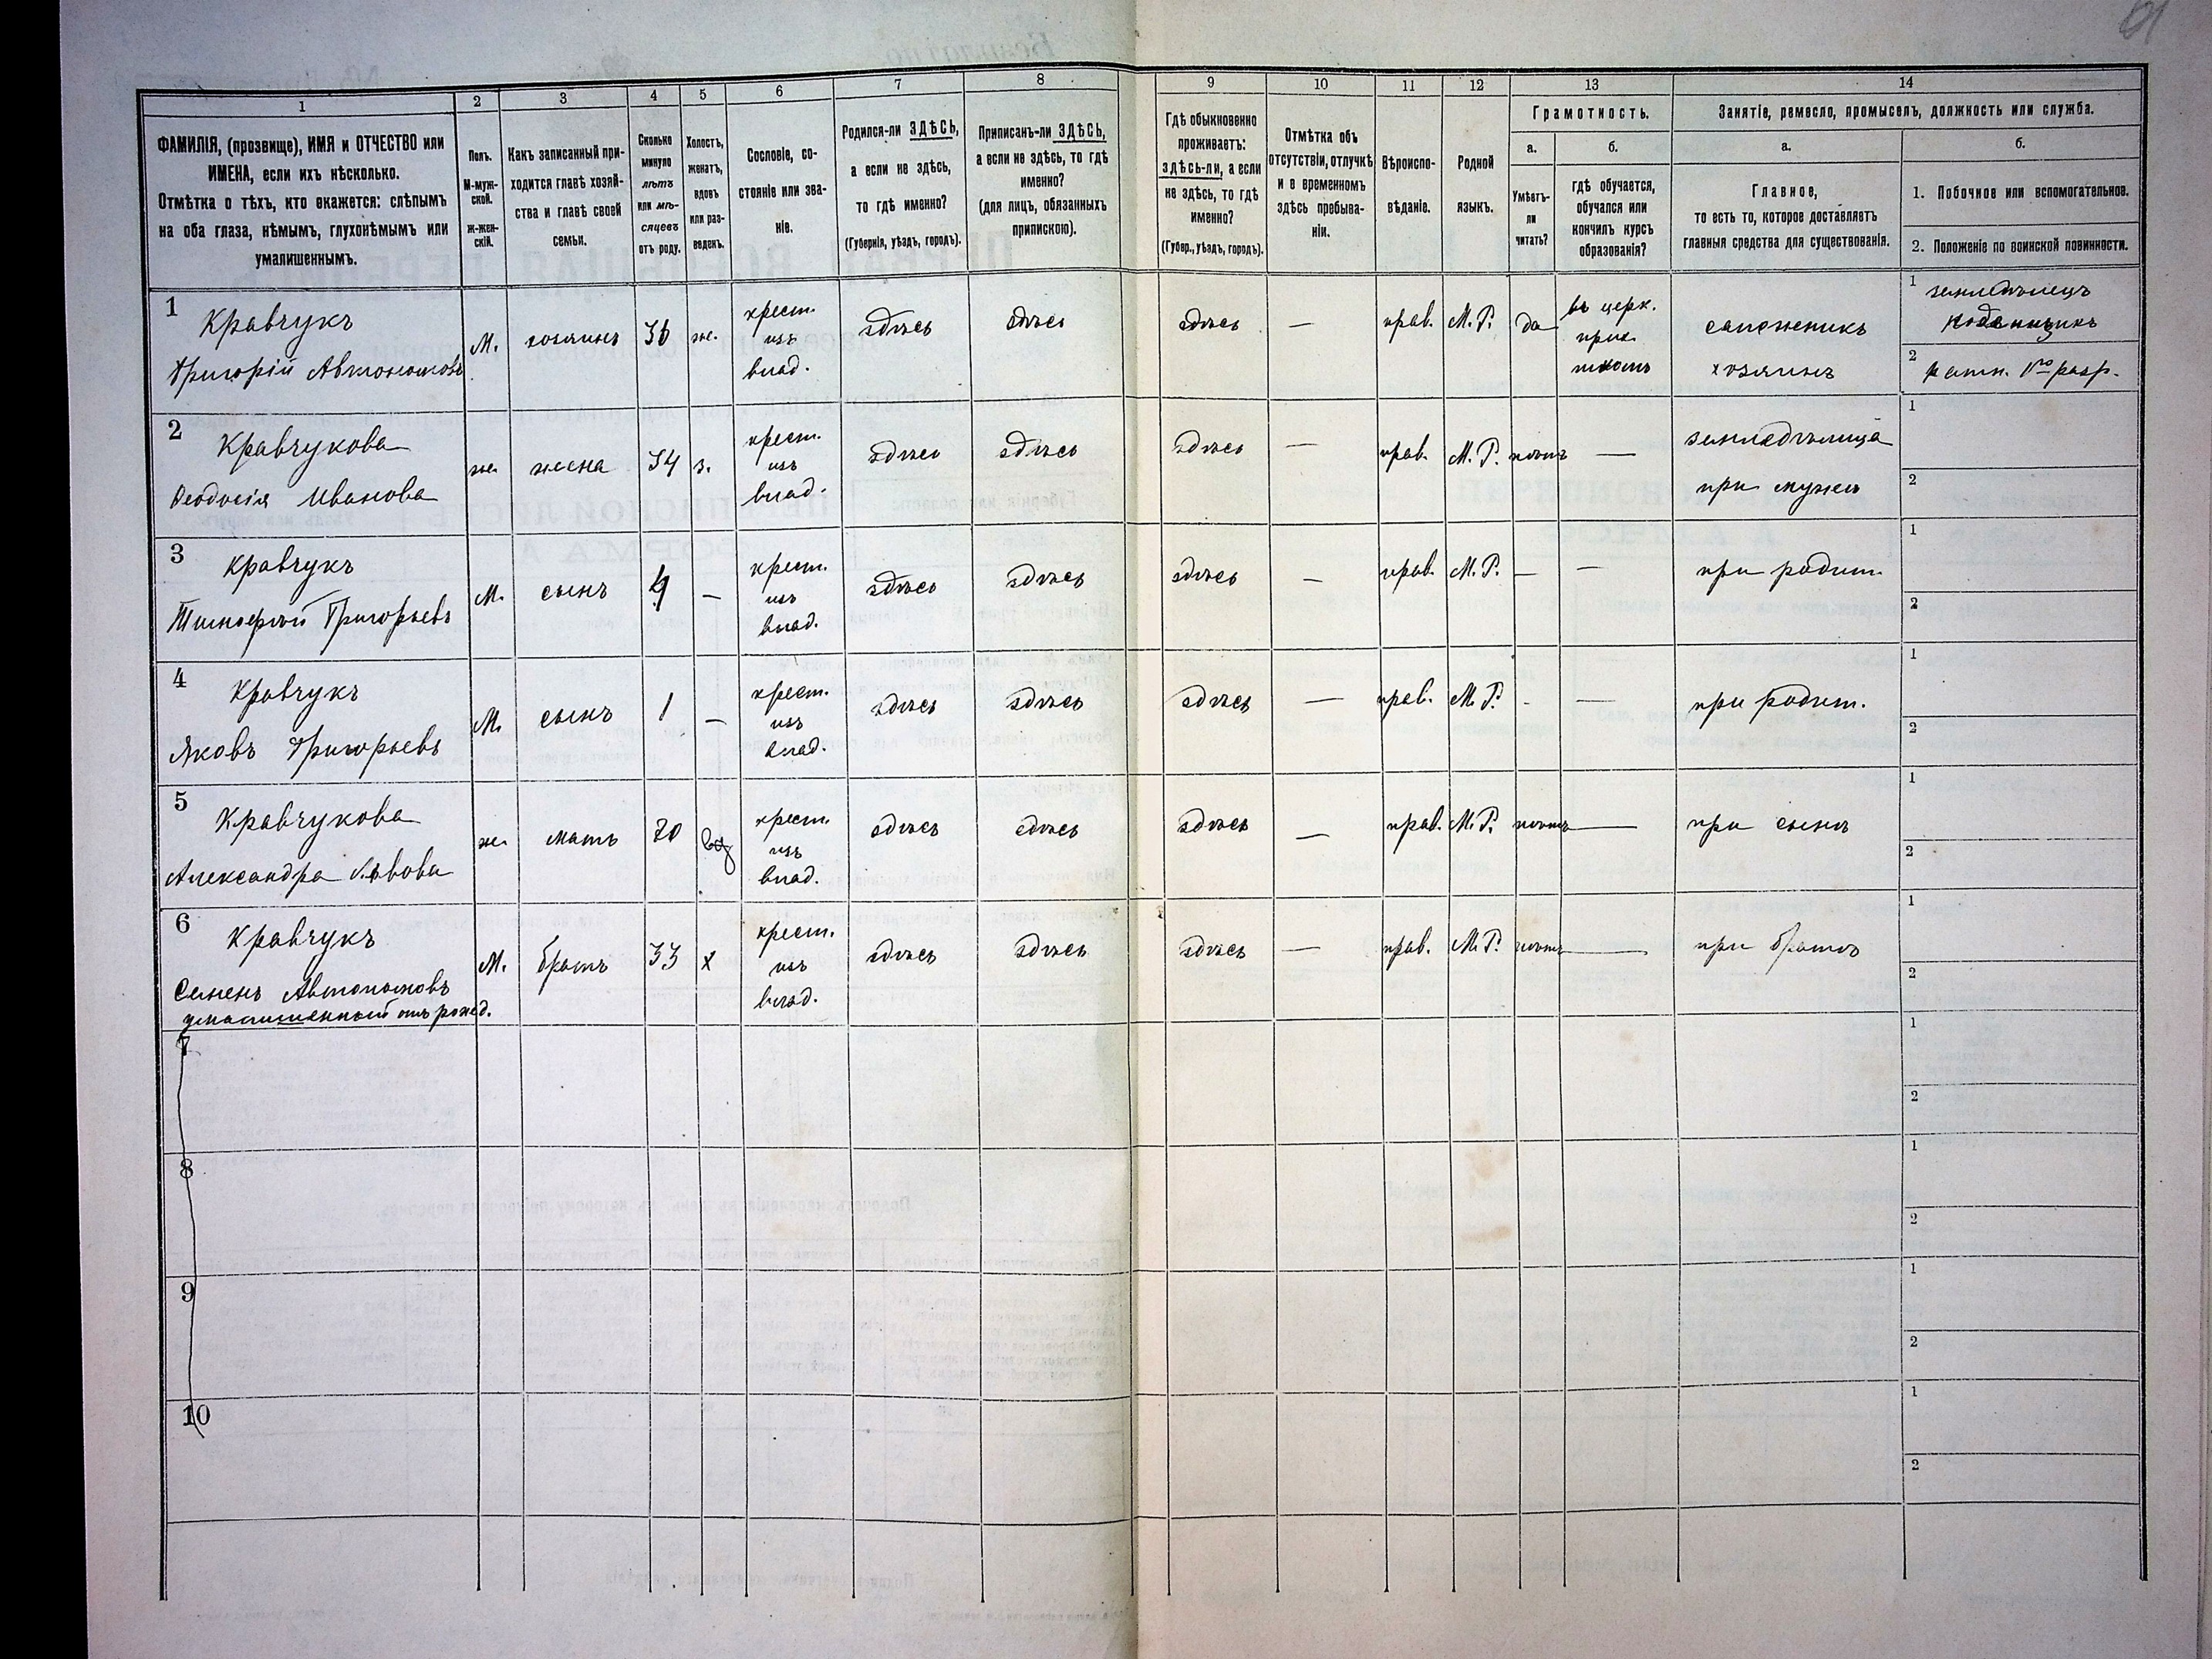 61
1 2 3 4 5 6 7 8 9 10 11 12 13 14
ФАМИЛІЯ, (прозвище), ИМЯ и ОТЧЕСТВО или
ИМЕНА, если ихъ нѣсколько.
Отмѣтка о тѣхъ, кто окажется: слѣпымъ
на оба глаза, нѣмымъ, глухонѣмымъ или
умалишеннымъ.
Полъ.
М-муж-
ской.
ж-жен-
скій.
Какъ записанный при-
ходится главѣ хозяй-
ства и главѣ своей
семьи.
Сколько
минуло
лѣтъ
или мѣ-
сяцевъ
отъ роду.
Холостъ,
женатъ,
вдовъ
или раз-
веденъ.
Сословіе, со-
стояніе или зва-
ніе.
Родился-ли ЗДѢСЬ,
а если не здѣсь,
то гдѣ именно?
(Губернія, уѣздъ, городъ).
Приписанъ-ли ЗДѢСЬ,
а если не здѣсь, то гдѣ
именно?
(для лицъ, обязанныхъ
припискою).
Гдѣ обыкновенно
проживаетъ:
здѣсь-ли, а если
не здѣсь, то гдѣ
именно?
(Губер., уѣздъ, городъ).
Отмѣтка объ
отсутствіи, отлучкѣ
и о временномъ
здѣсь пребыва-
ніи.
Вѣроиспо-
вѣданіе.
Родной
языкъ.
Грамотность.
а.
Умѣетъ-
ли
читать?
б.
гдѣ обучается,
обучался или
кончилъ курсъ
образованія?
Занятіе, ремесло, промыселъ, должность или служба.
а.
Главное,
то есть то, которое доставляетъ
главныя средства для существованія.
б.
1. Побочное или вспомогательное.
2. Положеніе по воинской повинности.
1
Кравчукъ
Григорій Автономовъ
М.
хозяинъ
36
же.
крест.
изъ
влад.
здѣсь
здѣсь
здѣсь
—
прав.
М. Р.
да
въ церк.
прих.
школѣ
сапожникъ
хозяинъ
1 земледѣлецъ
2 ратн. 1го разр.
2
Кравчукова
Ѳеодосія Иванова
же.
жена
34
з.
крест.
изъ
влад.
здѣсь
здѣсь
здѣсь
—
прав.
М. Р.
нѣтъ
—
земледѣлица
при мужѣ
1
2
3
Кравчукъ
Тимофѣй Григорьевъ
М.
сынъ
4
—
крест.
изъ
влад.
здѣсь
здѣсь
здѣсь
—
прав.
М. Р.
—
—
при родит.
1
2
4
Кравчукъ
Яковъ Григорьевъ
М.
сынъ
1
—
крест.
изъ
влад.
здѣсь
здѣсь
здѣсь
—
прав.
М. Р.
-
—
при родит.
1
2
5
Кравчукова
Александра Львова
же.
мать
70
вд
крест.
изъ
влад.
здѣсь
здѣсь
здѣсь
—
прав.
М. Р.
нѣтъ
—
при сынѣ
1
2
6
Кравчукъ
Семенъ Автономовъ
умалишенный отъ рожд.
М.
братъ
33
х
крест.
изъ
влад.
здѣсь
здѣсь
здѣсь
—
прав.
М. Р.
нѣтъ
—
при братѣ
1
2
7
1
2
8
1
2
9
1
2
10
1
2